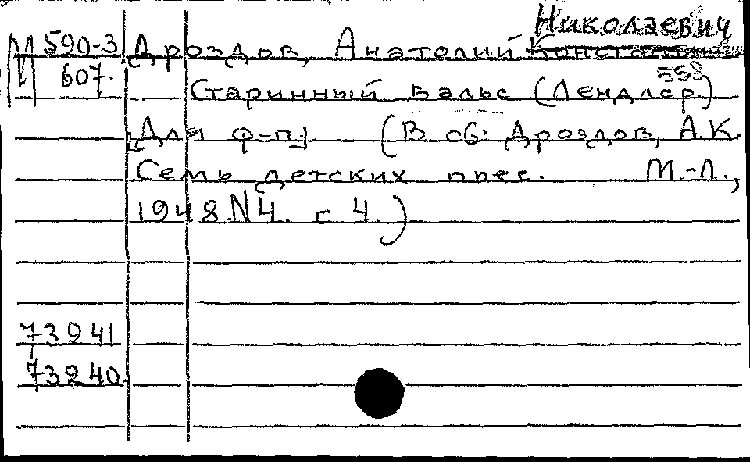 Николаевич
М 590-3 Дроздов, Анатолий
607. Старинный вальс (Лендлер)
558
Для ф-п. (В сб. Дроздов, А.К.
Семь детских пьес. М.-Л.,
1948 N4. с 4.)
73941
73240